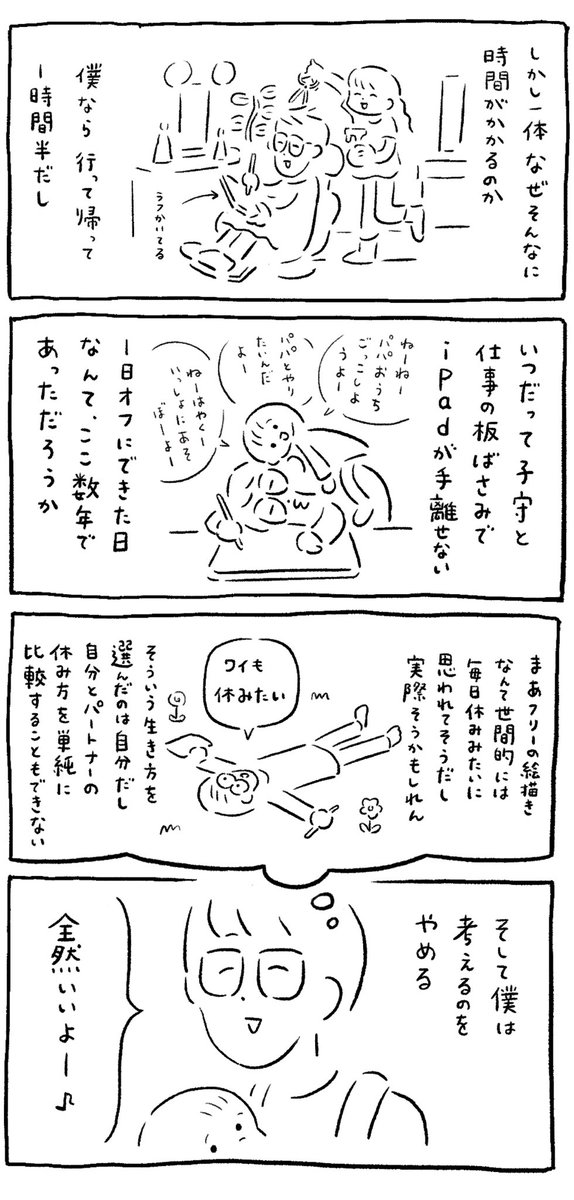 しかし一体なぜそんなに
時間がかかるのか
僕なら行って帰って
1時間半だし
ラフかいてる
いつだって子守と
仕事の板ばさみで
iPadが手離せない
ねーねー
パパおうち
ごっこしよ
うよー
パパとやり
たいんだ
よー
ねーはやくー
いっしょにあそ
ぼーよー
1日オフにできた日
なんて、ここ数年で
あっただろうか
まあフリーの絵描き
なんて世間的には
毎日休みみたいに
思われてそうだし
実際そうかもしれん
ワイも
休みたい
そういう生き方を
選んだのは自分だし
自分とパートナーの
休み方を単純に
比較することもできない
そして僕は
考えるのを
やめる
全然いいよー♪